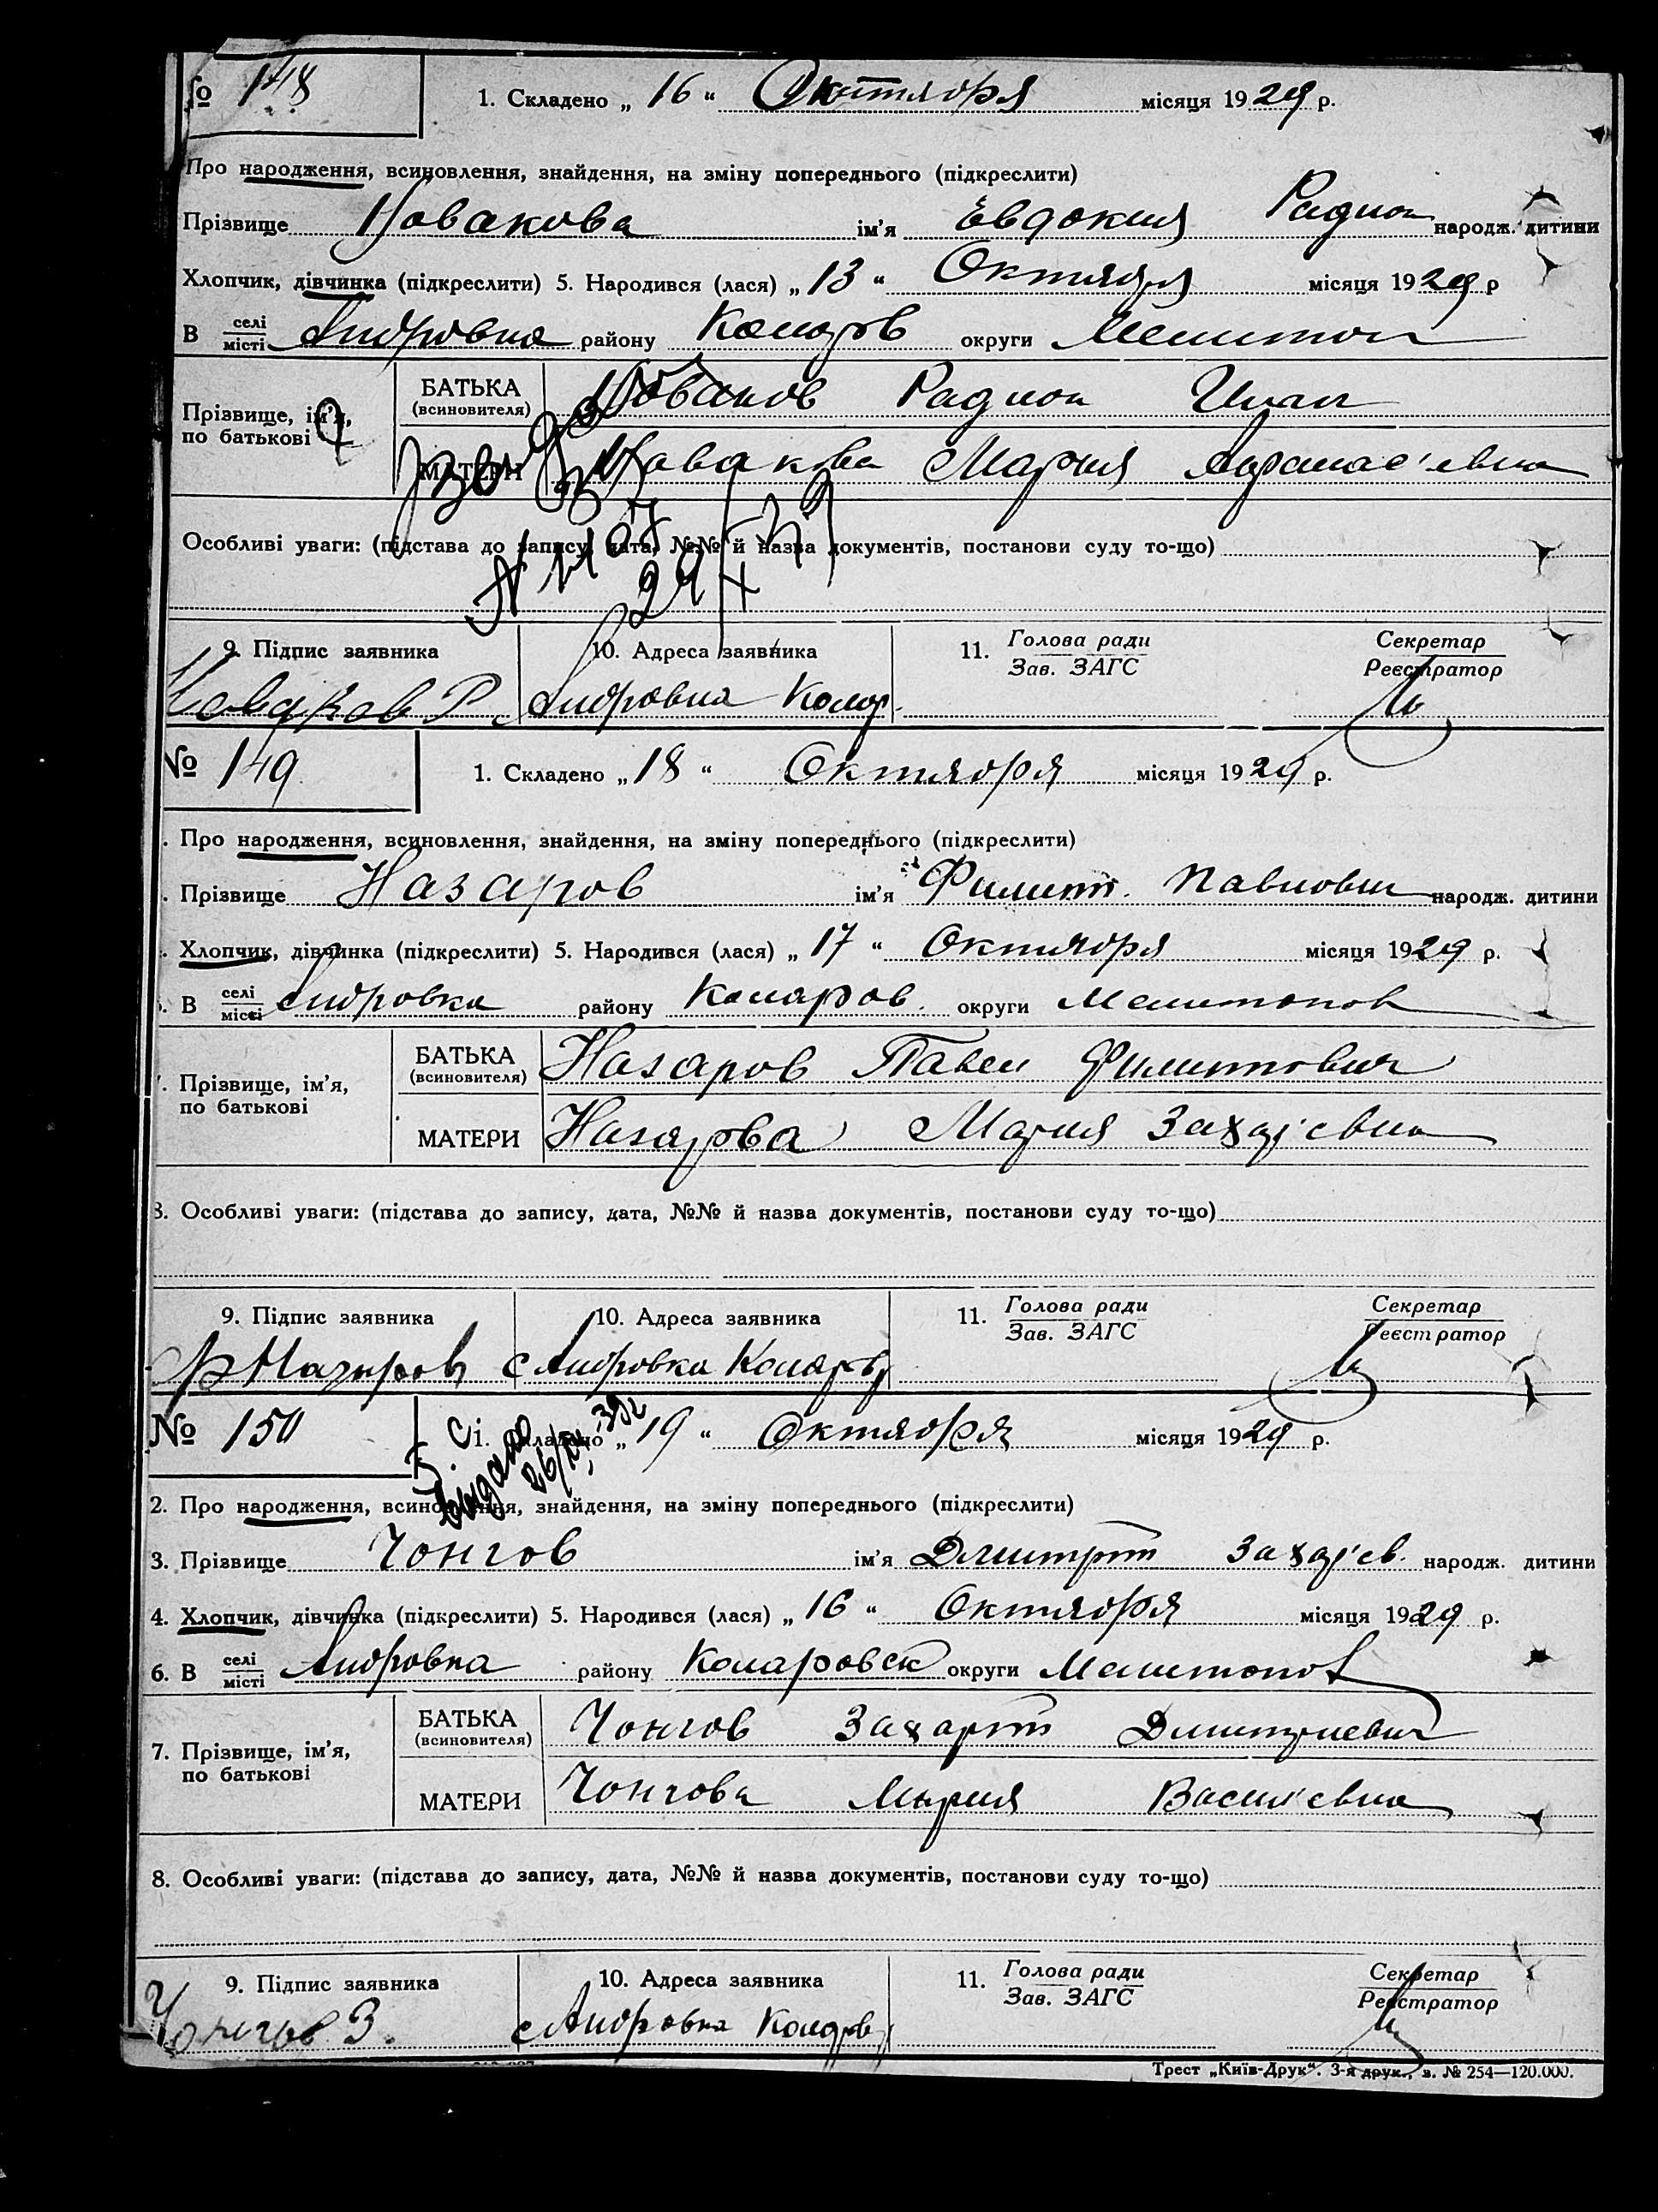 № 148 1. Складено „ 16 “ Октября місяця 1929 р.
Про народження, всиновлення, знайдення, на зміну попереднього (підкреслити)
Прізвище Новакова ім'я Евдокия Радион народж. дитини
Хлопчик, дівчинка (підкреслити) 5. Народився (лася) „ 13 “ Октября місяця 1929 р
В селі місті району округи
Прізвище, ім'я, по батькові БАТЬКА (всиновителя) Новаков Радион Иван
МАТЕРИ Новакова Мария
Особливі уваги: (підстава до запису, дата, №№ й назва документів, постанови суду то-що)
9. Підпис заявника 10. Адреса заявника 11. Голова ради Зав. ЗАГС Секретар Реєстратор
Новаков Р
№ 149 1. Складено „ 18 “ Октября місяця 1929 р.
Про народження, всиновлення, знайдення, на зміну попереднього (підкреслити)
Прізвище Назаров ім'я Филипп. Павлович народж. дитини
Хлопчик, дівчинка (підкреслити) 5. Народився (лася) „ 17 “ Октября місяця 1929 р.
В селі місті району Комаров. округи Мелитопол
Прізвище, ім'я, по батькові БАТЬКА (всиновителя) Назаров Павел Филиппович
МАТЕРИ Назарова Мария Захарьевна
8. Особливі уваги: (підстава до запису, дата, №№ й назва документів, постанови суду то-що)
9. Підпис заявника 10. Адреса заявника 11. Голова ради Зав. ЗАГС Секретар Реєстратор
Назаров
№ 150 1. Складено „ 19 “ Октября місяця 1929 р.
2. Про народження, всиновлення, знайдення, на зміну попереднього (підкреслити)
3. Прізвище Чонгов ім'я Дмитрий Захарьев. народж. дитини
4. Хлопчик, дівчинка (підкреслити) 5. Народився (лася) „ 16 “ Октября місяця 1929 р.
6. В селі місті району округи
7. Прізвище, ім'я, по батькові БАТЬКА (всиновителя) Чонгов Захарий Дмитриевич
МАТЕРИ Чонгова Мария Васильевна
8. Особливі уваги: (підстава до запису, дата, №№ й назва документів, постанови суду то-що)
9. Підпис заявника 10. Адреса заявника 11. Голова ради Зав. ЗАГС Секретар Реєстратор
Чонгов З.
Трест „Київ-Друк“. 3-я друк., з. № 254—120.000.